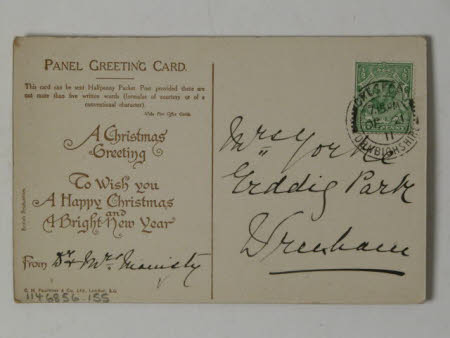 PANEL GREETING CARD.
This card can be sent Halfpenny Packet Post provided there are
not more than five written words (formulas of courtesy or of a
conventional character).
Vide Post Office Guide.
A Christmas
Greeting
To Wish you
A Happy Christmas
and
A Bright New Year
From Dr & Mrs
British Production.
C. W. Faulkner & Co., Ltd., London, E.C.
1146856.155
Mrs Yorke
Erddig Park
Wrexham
DENBIGHSHIRE
11